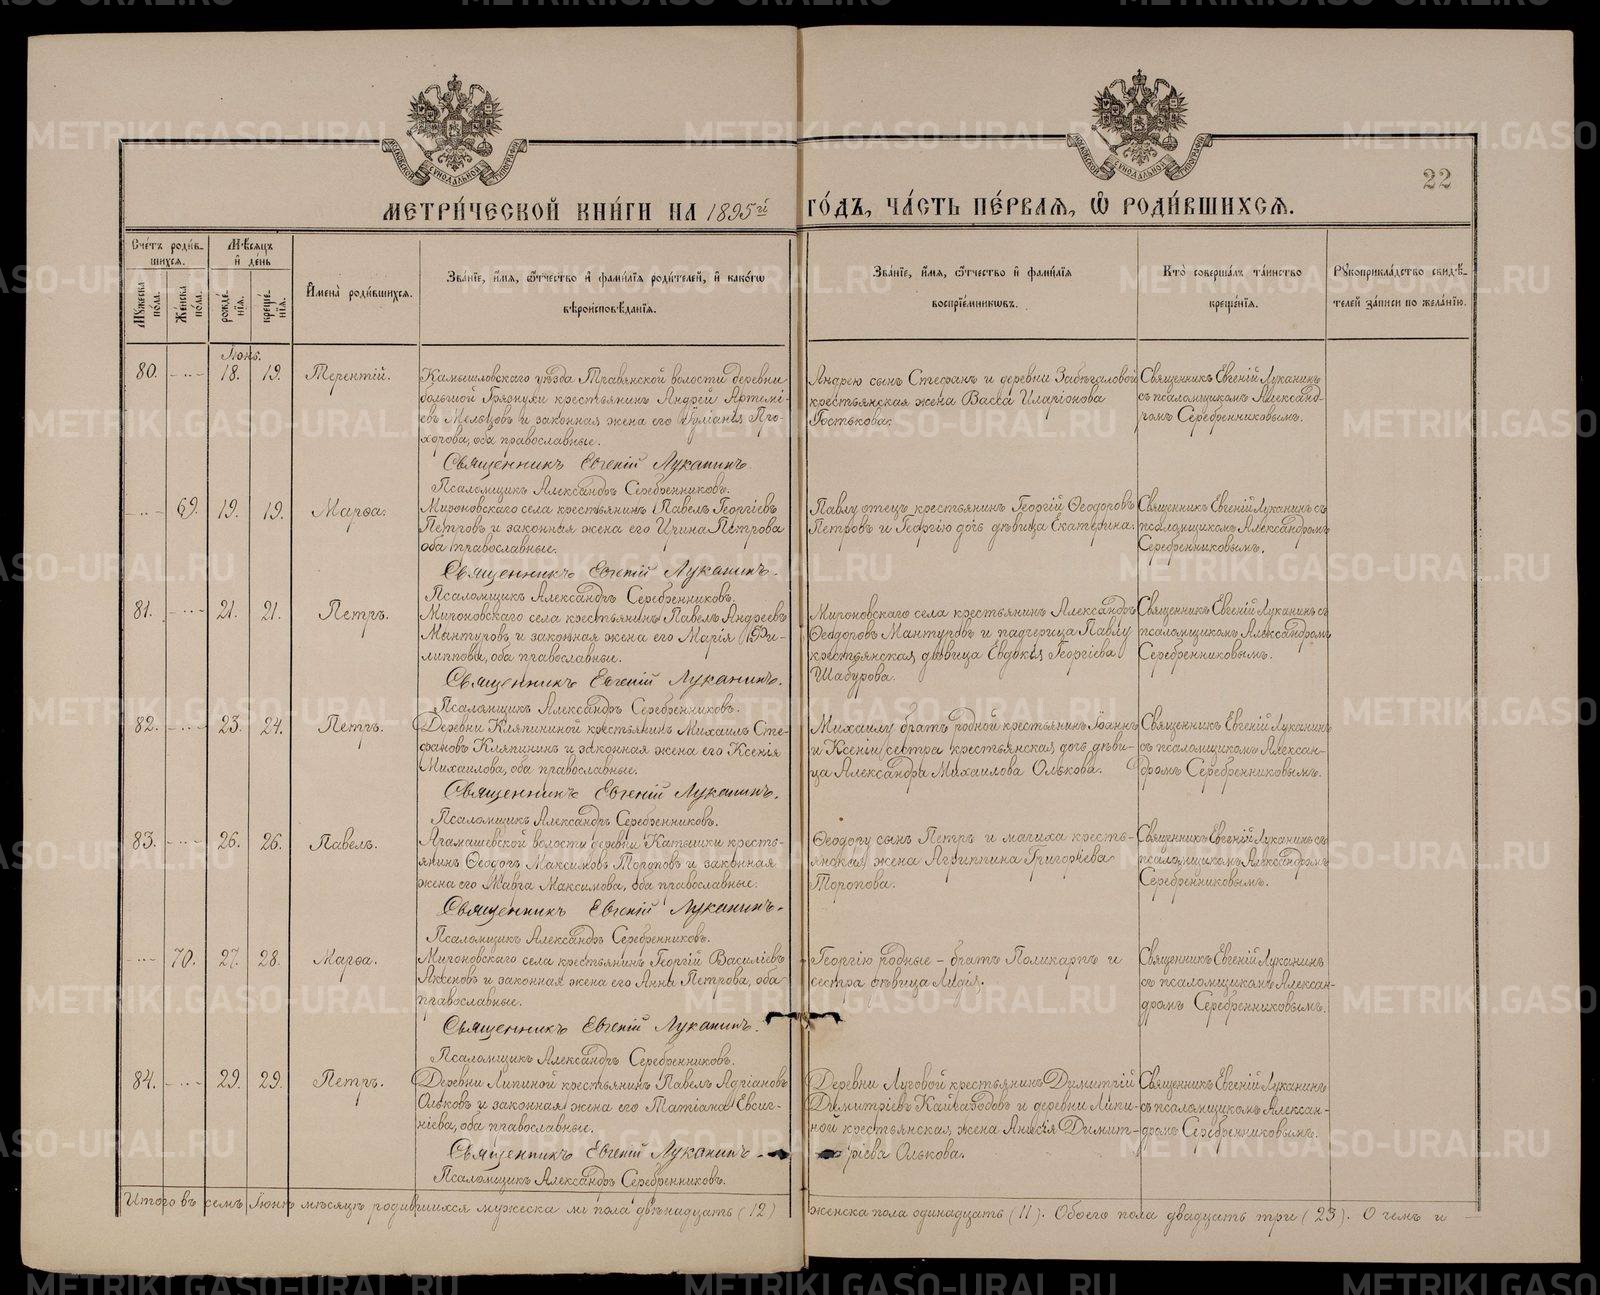 МОСКОВСКОЙ СѴНОДАЛЬНОЙ ТИПОГРАФІИ
МОСКОВСКОЙ СѴНОДАЛЬНОЙ ТИПОГРАФІИ
22
МЕТРИ́ЧЕСКОЙ КНИ́ГИ НА 1895й ГО́ДЪ, ЧА́СТЬ ПЕ́РВАЯ, Ѡ РОДИ́ВШИХСЯ.
Сче́тъ роди́в-
шихся.
Мѣ́сяцъ
и҆ де́нь
Мꙋ́жеска по́ла.
Же́нска по́ла.
рожде́-
нїя.
креще́-
нїя.
И҆мена̀ роди́вшихся.
Зва́нїе, и҆́мя, ѻ҆́тчество и҆ фами́лїя роди́телей, и҆ како́гѡ
вѣроисповѣ́данїя.
Зва́нїе, и҆́мя, ѻ҆́тчество и҆ фами́лїя
воспрїе́мниковъ.
Кто̀ соверша́лъ та́инство
креще́нїя.
Рꙋкоприкла́дство свидѣ́-
телей за́писи по жела́нїю.
Іюнь.
80. - ..- 18. 19. Терентій.
Камышловскаго уѣзда Травянской волости деревни
большой Грязнухи крестьянинъ Андрей Артемі-
евъ Мельцовъ и законная жена его Іуліанія Про-
хорова, оба православные.
Священникъ Евгеній Луканинъ.
Псаломщикъ Александръ Серебренниковъ.
Андрею сынъ Стефанъ и деревни Забѣгаловой
крестьянская жена Васса Иларіонова
Гостькова.
Священникъ Евгеній Луканинъ
съ псаломщикомъ Александ-
ромъ Серебренниковымъ.
- ..- 69. 19. 19. Марѳа.
Мироновскаго села крестьянинъ Павелъ Георгіевъ
Петровъ и законная жена его Ирина Петрова
оба православные.
Священникъ Евгеній Луканинъ.
Псаломщикъ Александръ Серебренниковъ.
Павлу отецъ крестьянинъ Георгій Ѳеодоровъ
Петровъ и Георгію дочь дѣвица Екатерина.
Священникъ Евгеній Луканинъ съ
псаломщикомъ Александромъ
Серебренниковымъ.
81. - ..- 21. 21. Петръ.
Мироновскаго села крестьянинъ Павелъ Андреевъ
Мантуровъ и законная жена его Марія Фи-
липпова, оба православные.
Священникъ Евгеній Луканинъ.
Псаломщикъ Александръ Серебренниковъ.
Мироновскаго села крестьянинъ Александръ
Ѳеодоровъ Мантуровъ и падчерица Павлу
крестьянская дѣвица Евдокія Георгіева
Шабурова.
Священникъ Евгеній Луканинъ съ
псаломщикомъ Александромъ
Серебренниковымъ.
82. - ..- 23. 24. Петръ.
Деревни Кляпининой крестьянинъ Михаилъ Сте-
фановъ Кляпининъ и законная жена его Ксенія
Михаилова, оба православные.
Священникъ Евгеній Луканинъ.
Псаломщикъ Александръ Серебренниковъ.
Михаилу братъ родной крестьянинъ Іоаннъ
и Ксеніи сестра крестьянская дочь дѣви-
ца Александра Михаилова Олькова.
Священникъ Евгеній Луканинъ
съ псаломщикомъ Алексан-
дромъ Серебренниковымъ.
83. - ..- 26. 26. Павелъ.
Арамашевской волости деревни Катышки кресть-
янинъ Ѳеодоръ Максимовъ Тороповъ и законная
жена его Мавра Максимова, оба православные.
Священникъ Евгеній Луканинъ.
Псаломщикъ Александръ Серебренниковъ.
Ѳеодору сынъ Петръ и мачиха кресть-
янская жена Агриппина Григорьева
Торопова.
Священникъ Евгеній Луканинъ съ
псаломщикомъ Александромъ
Серебренниковымъ.
- ..- 70. 27. 28. Марѳа.
Мироновскаго села крестьянинъ Георгій Василіевъ
Аксеновъ и законная жена его Анна Петрова, оба
православные.
Священникъ Евгеній Луканинъ.
Псаломщикъ Александръ Серебренниковъ.
Георгію родные - братъ Поликарпъ и
сестра дѣвица Лидія.
Священникъ Евгеній Луканинъ
съ псаломщикомъ Алексан-
дромъ Серебренниковымъ.
84. - ..- 29. 29. Петръ.
Деревни Липиной крестьянинъ Павелъ Адріановъ
Ольковъ и законная жена его Татіана Евсиг-
ніева, оба православные.
Священникъ Евгеній Луканинъ.
Псаломщикъ Александръ Серебренниковъ.
Деревни Луговой крестьянинъ Димитрій
Димитріевъ Кайгородовъ и деревни Липи-
ной крестьянская жена Анисія Димит-
ріева Олькова.
Священникъ Евгеній Луканинъ
съ псаломщикомъ Алексан-
дромъ Серебренниковымъ.
Итого въ семъ Іюнѣ мѣсяцѣ родившихся мужеска пола двѣнадцать (12)
женска пола одинадцать (11). Обоего пола двадцать три (23). О чемъ и
METRIKI.GASO-URAL.RU